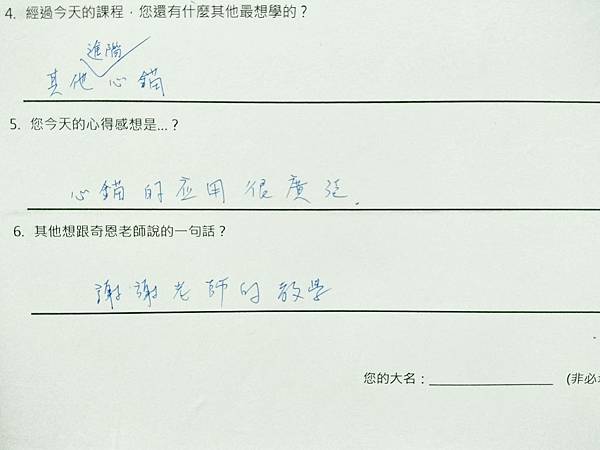 4. 經過今天的課程，您還有什麼其他最想學的？
進階
其他心錨
5. 您今天的心得感想是...？
心錨的应用很廣泛.
6. 其他想跟奇恩老師說的一句話？
謝謝老師的教學
您的大名：＿＿＿＿＿＿＿＿ (非必